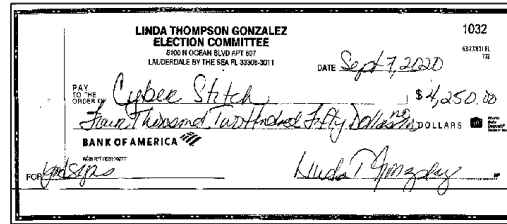 LINDA THOMPSON GONZALEZ
1032
ELECTION COMMITTEE
5100 N OCEAN BLVD APT 607
LAUDERDALE BY THE SEA FL 33308-3011
DATE Sept 7, 2020
PAY
TO THE
ORDER OF Cyber Stitch $ 4,250.00
Four Thousand Two Hundred Fifty Dollars DOLLARS
BANK OF AMERICA
FOR yard signs Linda T Gonzalez